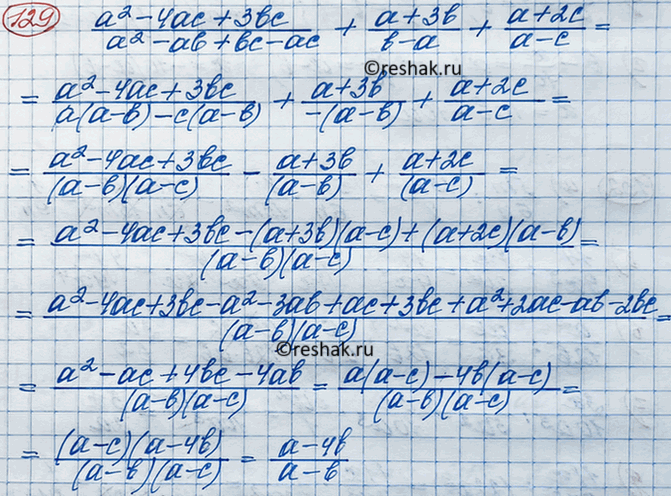 129 (a² - 4ac + 3bc)/(a² - ab + bc - ac) + (a + 3b)/(b - a) + (a + 2c)/(a - c) =
©reshak.ru
= (a² - 4ac + 3bc)/(a(a - b) - c(a - b)) + (a + 3b)/(-(a - b)) + (a + 2c)/(a - c) =
= (a² - 4ac + 3bc)/((a - b)(a - c)) - (a + 3b)/((a - b)) + (a + 2c)/((a - c)) =
= (a² - 4ac + 3bc - (a + 3b)(a - c) + (a + 2c)(a - b))/((a - b)(a - c)) =
= (a² - 4ac + 3bc - a² - 3ab + ac + 3bc + a² + 2ac - ab - 2bc)/((a - b)(a - c)) =
©reshak.ru
= (a² - ac + 4bc - 4ab)/((a - b)(a - c)) = (a(a - c) - 4b(a - c))/((a - b)(a - c)) =
= ((a - c)(a - 4b))/((a - b)(a - c)) = (a - 4b)/(a - b)